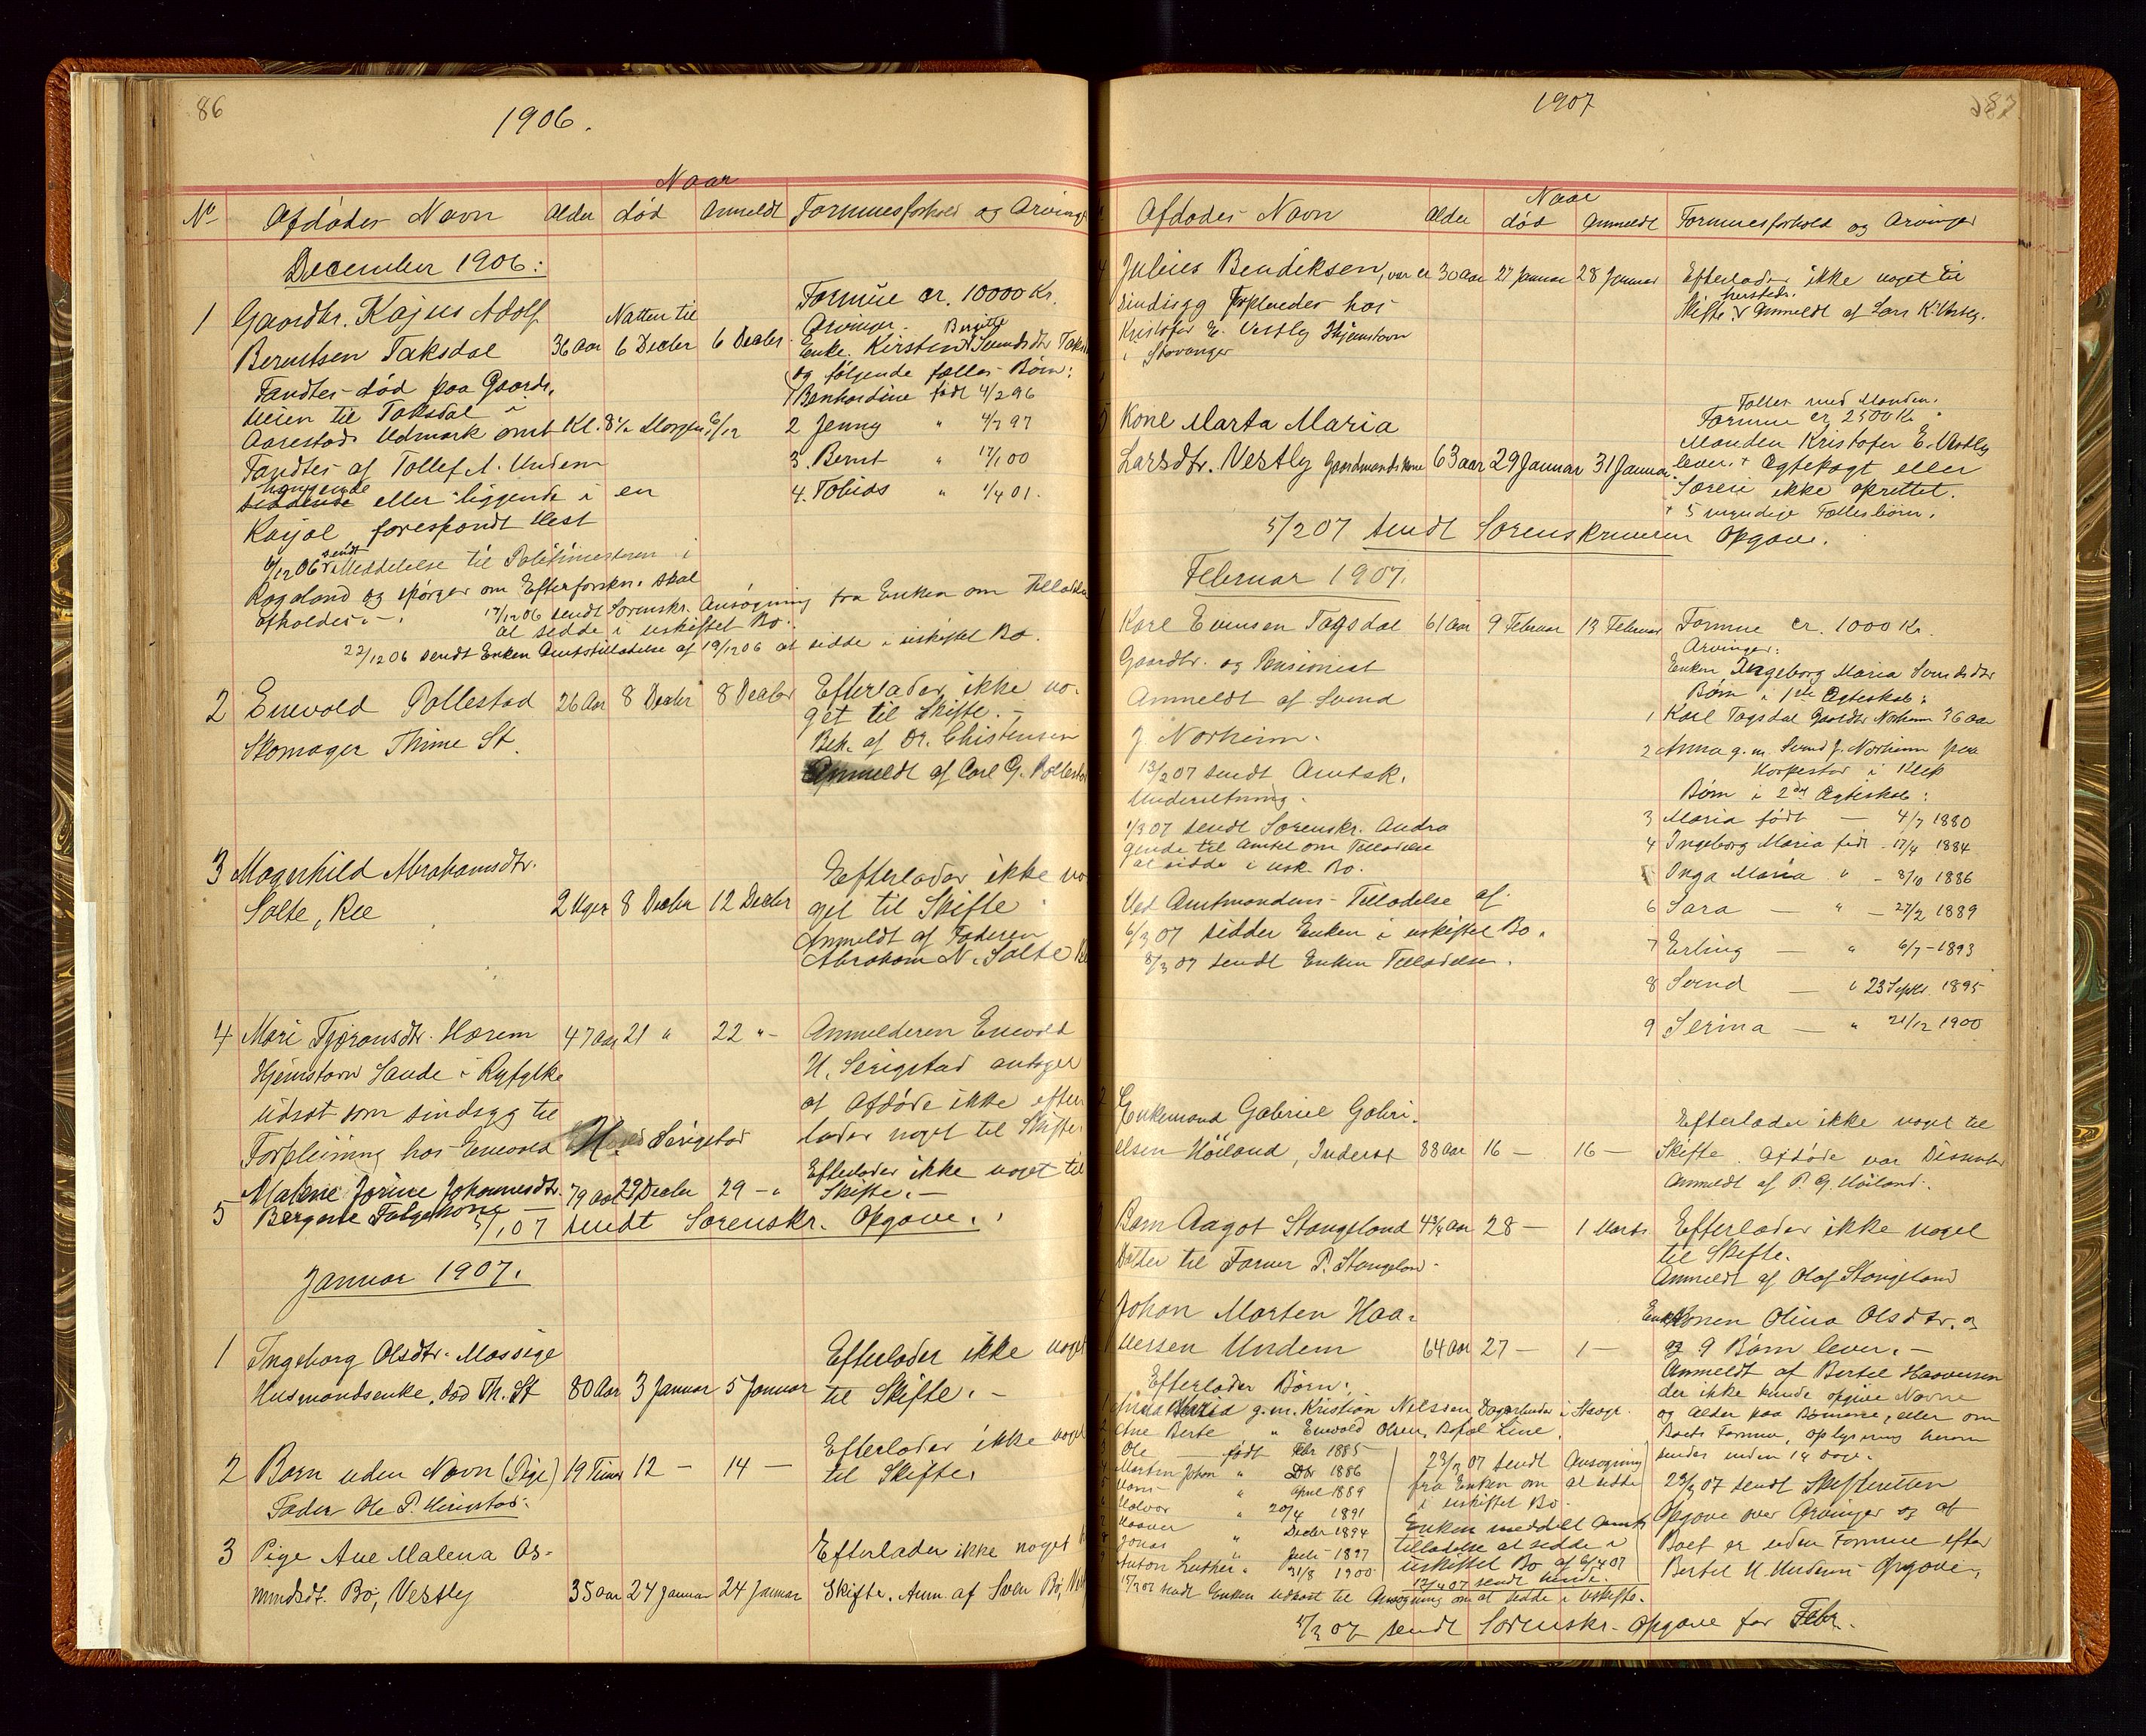 86
1906.
Naar
No Afdødes Navn Alder død Anmeldt Formuesforhold og Arvinger
December 1906:
1 Gaardbr. Kajus Adolf
Berntsen Taksdal 36 Aar
Natten til
6 Decbr 6 Decbr.
Fandtes død paa Gaards-
veien til Taksdal i
Aarestads Udmark omt. Kl. 8½ Morgen 6/12
Fandtes af Tollef A. Undem
hængende
siddende eller liggende i en
Karjol forespændt Hest
Formue cr. 10000 Kr.
Arvinger.
Birgitte
Enke. Kirsten Svendsdtr Taks
og følgende fælles Børn:
1 Benhardine født 4/2 96
2 Jenny " 4/7 97
3. Bernt " 17/1 00
4. Tobias " 1/4 01.
6/12 06 sendt Meddelelse til Politimesteren i
Rogaland og spørger om Efterforskn. skal
afholdes. -
17/12 06 sendt Sorenskr. Ansøgning fra Enken om Tilladelse
at sidde i uskiftet Bo.
22/12 06 sendt Enken Amtstilladelse af 19/12 06 at sidde i uskiftet Bo.
2 Enevold Pollestad 26 Aar 8 Decbr 8 Decbr
Skomager Thime St.
Efterlader ikke no-
get til Skifte. -
Beh. af Dr. Christensen
Anmeldt af Carl G. Pollestad
3 Magnhild Abrahamsdtr.
Salte, Ree 2 Uger 8 Decbr 12 Decbr
Efterlader ikke no
get til Skifte
Anmeldt af Faderen
Abraham N. Salte
4 Mari Tjøransdtr. Harem 47 Aar 21 " 22 " -
Hjemstavn Sande i Ryfylke
Udsat som sindsyg til
Forpleining hos Enevold H. Serigstad
Anmelderen Enevold
H. Serigstad antager
at Afdøde ikke efter
lader noget til Skifte
5 Malene Jorine Johannesdtr. 79 Aar 29 Decbr 29 - "
Bergene Folgekone
Efterlader ikke noget til
Skifte. -
5/1 07 sendt Sorenskr. Opgave.
Januar 1907.
1 Ingeborg Olsdtr. Mossige
Husmandsenke, død Th. St 80 Aar 3 Januar 5 Januar
Efterlader ikke noget
til Skifte. -
2 Barn uden Navn (Pige) 19 Timer 12 - 14 -
Fader Ole P. Hersigstad
Efterlader ikke noget
til Skifte.
3 Pige Ane Malena As-
mundsdt. Bø, Vestly 35 aar 24 Januar 24 Januar
Efterlader ikke noget
Skifte. Anm. af Sven Bø,
1907
87
Naar
Afdødes Navn Alder død Anmeldt Formuesforhold og Arvinger
4 Julius Bendiksen, var en 30 aar 27 Januar 28 Januar
Sindsyg forpleiedes hos
Kristofer E. Vestly Hjemstavn
i Stavanger
Efterlader ikke noget til
hersteds.
Skifte Anmeldt af Lars K. Vestly.
5 Kone Marta Maria
Larsdtr. Vestly Gaardmandskone 63 aar 29 Januar 31 Januar
Fælles med Manden.
Formue cr. 2500 Kr.
Manden Kristofer E. Vestly
lever. + Ægtepagt eller
Særeie ikke oprettet.
+ 5 myndige Fællesbørn.
5/2 07 sendt Sorenskriveren Opgave.
Februar 1907.
1 Karl Evensen Tagsdal 61 aar 9 Februar 13 Februar
Gaardbr. og Pensionist
Anmeldt af Svend
J. Norheim.
13/2 07 sendt Amtsk.
Underretning.
1/3 07 sendt Sorenskr. Andra
gende til Amtet om Tilladelse
at sidde i usk. Bo.
Ved Amtmandens Tilladelse af
6/3 07 sidder Enken i uskiftet Bo.
8/3 07 sendt Enken Tilladelsen.
Formue cr. 1000 Kr.
Arvinger:
Enken Ingeborg Maria Svendsdtr
Børn i 1ste Ægteskab:
1 Karl Tagsdal Gaardbr Norheim 36 aar
2 Anna g. m. Svend J. Norheim paa
Horpestad i Klep
Børn i 2det Ægteskab:
3 Maria født - 4/7 1880
4 Ingeborg Maria født - 17/4 1884
5 Inga Maria " - 8/10 1886
6 Sara - " - 27/2 1889
7 Erling - " 6/7 - 1893
8 Svend - " 23 Septbr. 1895
9 Serina - " 21/12 1900
2 Enkemand Gabriel Gabri-
elsen Höiland, Inderst 88 aar 16 - 16 -
Efterlader ikke noget til
Skifte. Afdøde var Dissenter
Anmeldt af P. G. Höiland.
3 Barn Aagot Stangeland 4¾ aar 28 - 1 Marts
Datter til Farver P. Stangeland.
Efterlader ikke noget
til Skifte.
Anmeldt af Olaf Stangeland
4 Johan Morten Haa-
versen Undem 64 aar 27 - 1 -
Enken Konen Olina Olsdtr. og
og 9 Børn lever. -
Anmeldt af Bertel Haaversen
der ikke kunde opgive Navne
og Alder paa Børnene, eller om
Boets Formue, oplysning herom
sendes inden 14 dage.
Efterlader Børn:
1 g. m. Kristian Nilssen Dagarbeider i Stavgr.
2 Ane Berte " Enevold Olsen,
3 Ole født Febr 1885
4 Morten Johan " Dbr 1886
5 Hans " April 1889
6 Halvor " 20/4 1891
7 Haaver " Decbr 1894
8 Jonas " Juli 1897
9 Anton Luther " 31/8 1900
23/3 07 sendt Ansøgning
fra Enken om at sidde
i uskiftet Bo.
Enken meddelt Amts
tilladelse at sidde i
uskiftet Bo af 6/4 07
12/4 07 sendt hende.
23/3 07 sendt Skifteretten
Opgave over Arvinger og at
Boet er uden Formue efter
Bertel H. Undems Opgave.
15/3 07 sendt Enken udkast til Ansøgning om at sidde i Uskifte.
5/3 07 sendt Sorenskr. Opgave for Febr.